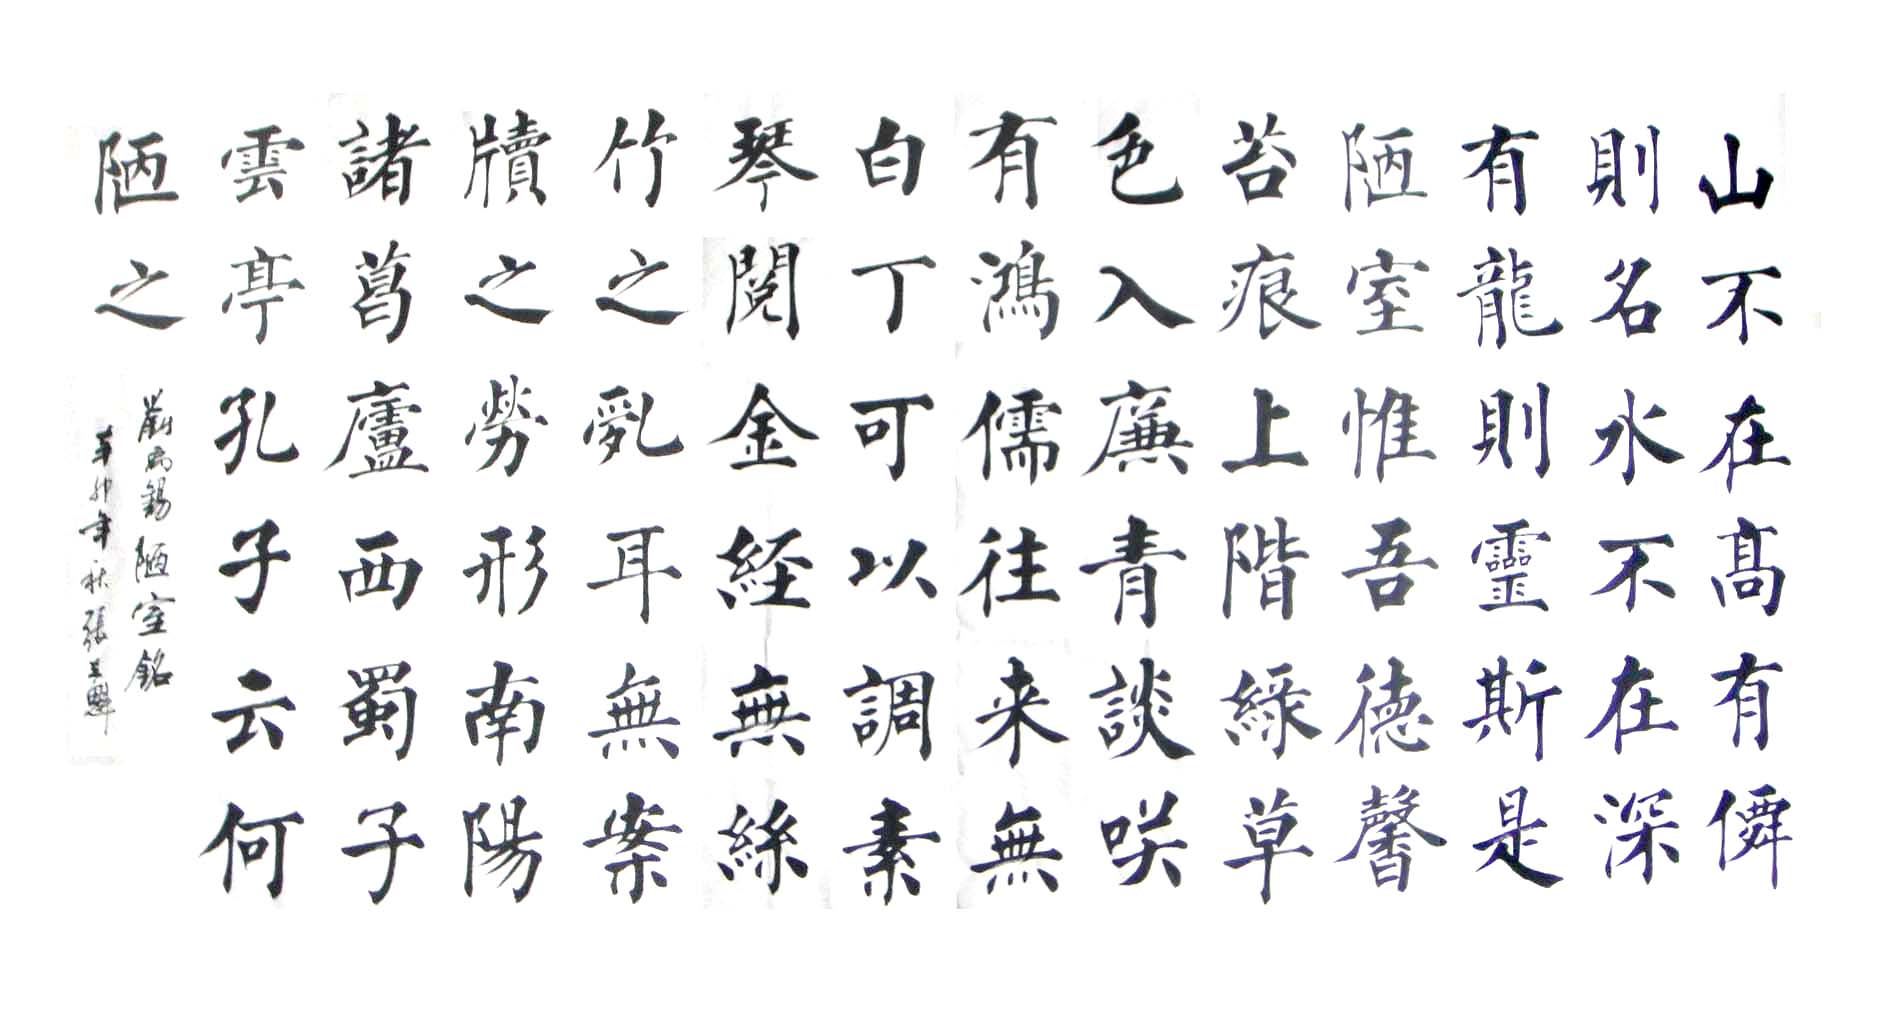 山不在髙有僊
則名水不在深
有龍則靈斯是
陋室惟吾德馨
苔痕上階綠草
色入廉青談咲
有鴻儒往来無
白丁可以調素
琴閱金経無絲
竹之亂耳無案
牘之勞形南陽
諸葛廬西蜀子
雲亭孔子云何
陋之
劉禹錫陋室銘
辛卯年秋張